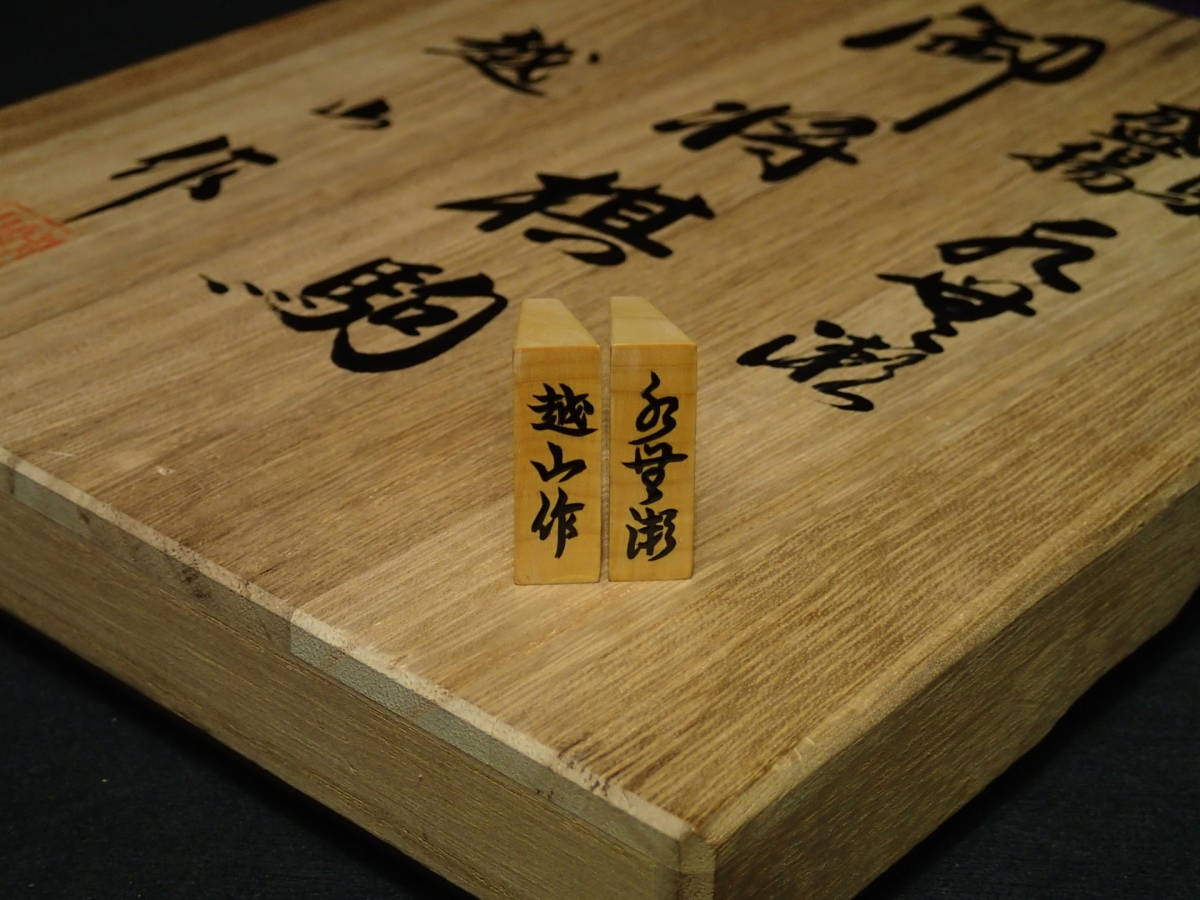 盛揚
水無瀬
御将棋駒
越山作
水無瀬
越山作